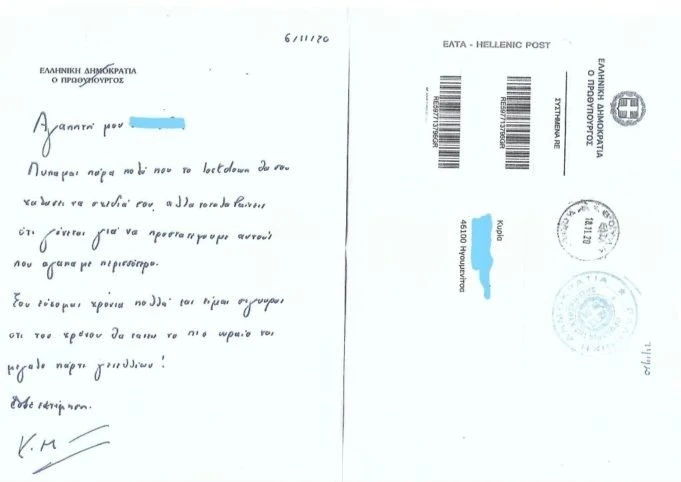 6/11/20
ΕΛΛΗΝΙΚΗ ΔΗΜΟΚΡΑΤΙΑ
Ο ΠΡΩΘΥΠΟΥΡΓΟΣ
Αγαπητή μου
Λυπάμαι πάρα πολύ που το lockdown θα σου
χαλάσει τα σχέδιά σου, αλλά καταλαβαίνεις
ότι γίνεται για να προστατέψουμε αυτούς
που αγαπάμε περισσότερο.
Σου εύχομαι χρόνια πολλά και είμαι σίγουρος
ότι του χρόνου θα κάνεις το πιο ωραίο και
μεγάλο πάρτι γενεθλίων!
εκτίμηση.
Κ.Μ
ΕΛΤΑ - HELLENIC POST
RE597713795GR
RE597713795GR
ΣΥΣΤΗΜΕΝΑ RE
ΕΛΛΗΝΙΚΗ ΔΗΜΟΚΡΑΤΙΑ
Ο ΠΡΩΘΥΠΟΥΡΓΟΣ
Κυρία
46100 Ηγουμενίτσα
10.11.20